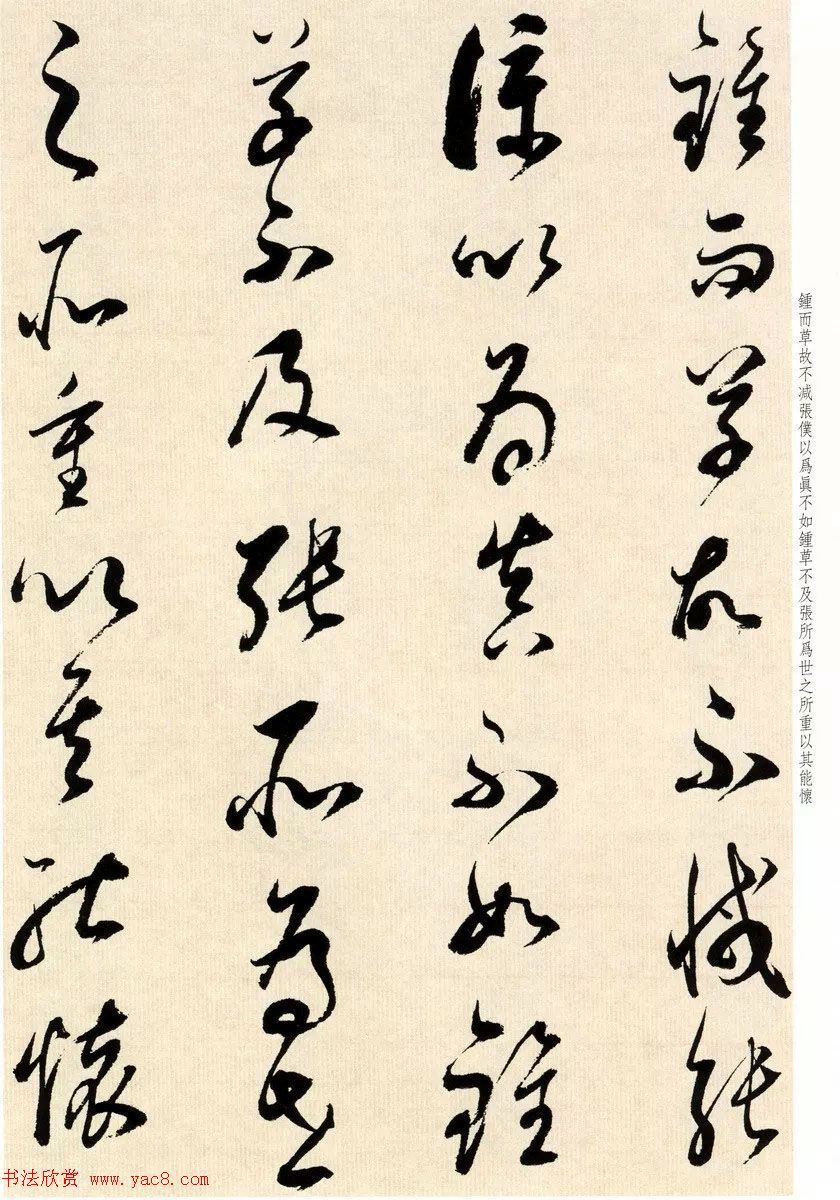 鍾而草故不減張
僕以爲真不如鍾
草不及張所爲世
之所重以其能懷
鍾而草故不减張僕以爲眞不如鍾草不及張所爲世之所重以其能懷
书法欣赏 www.yac8.com